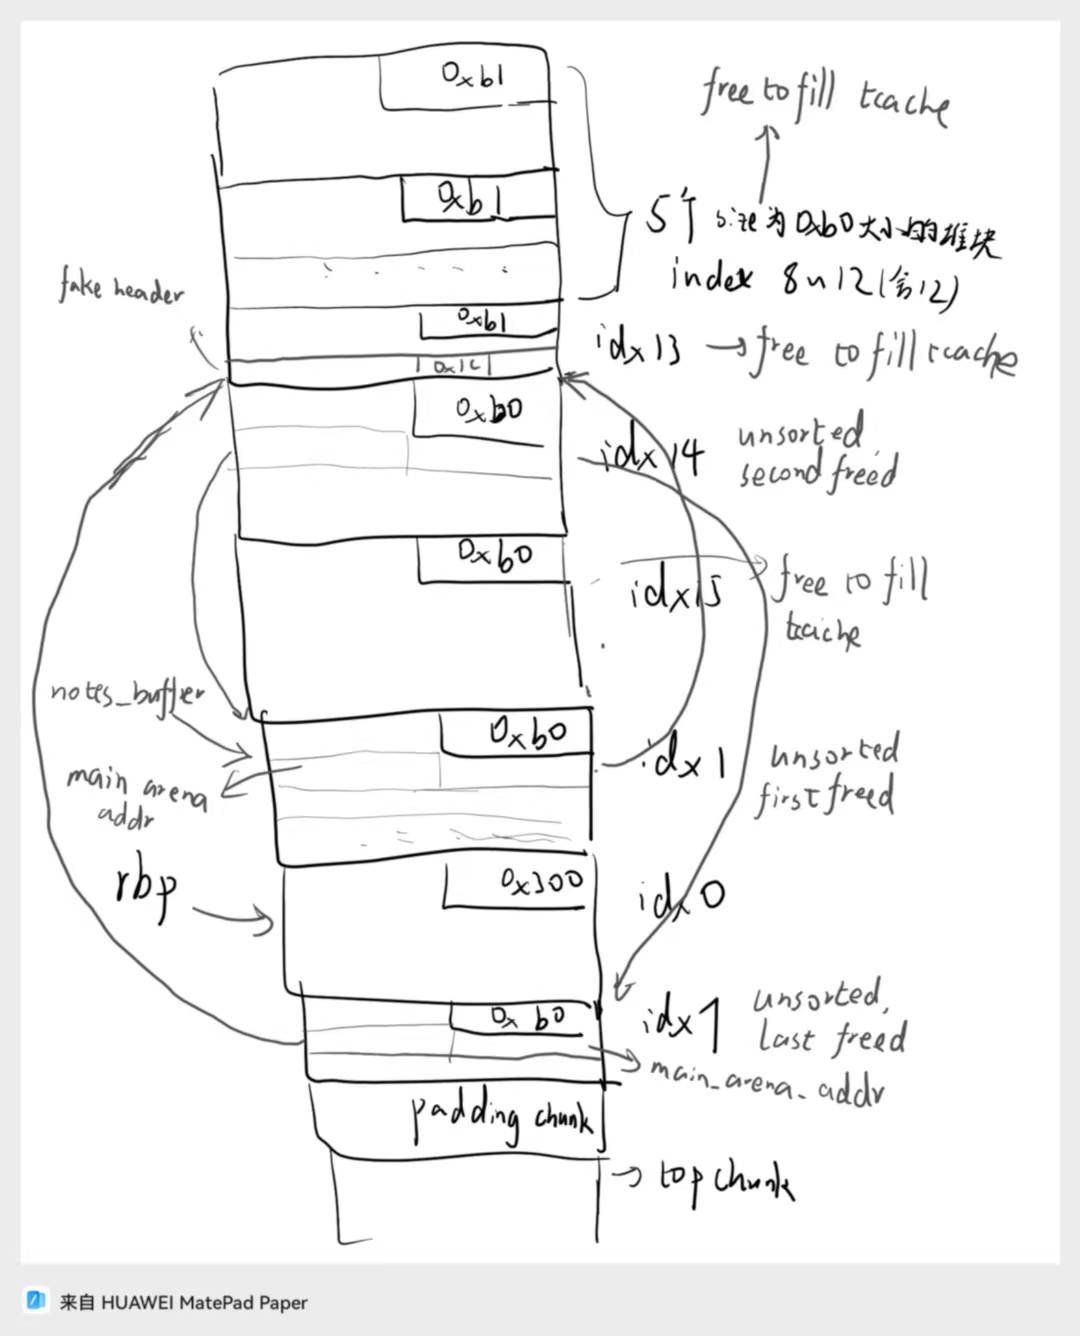 0xb1
free to fill tcache
0xb1
5个 size为0xb0大小的堆块
index 8~12(含12)
fake header
0xb1
idx13 → free to fill tcache
0xb0
idx14
unsorted
second freed
0xb0
idx15
free to fill
tcache
notes_buffer
0xb0
idx1
unsorted
first freed
main arena
addr
rbp
0x300
idx0
0xb0
idx7
unsorted,
last freed
main_arena_addr
padding chunk
top chunk
来自 HUAWEI MatePad Paper